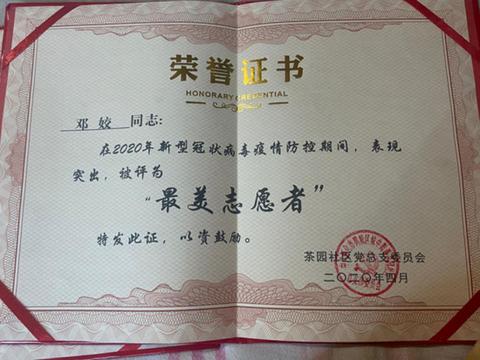 荣誉证书
HONORARY CREDENTIAL
邓姣 同志:
在2020年新型冠状病毒疫情防控期间，表现
突出，被评为
“最美志愿者”
特发此证，以资鼓励。
茶园社区党总支委员会
二〇二〇年四月